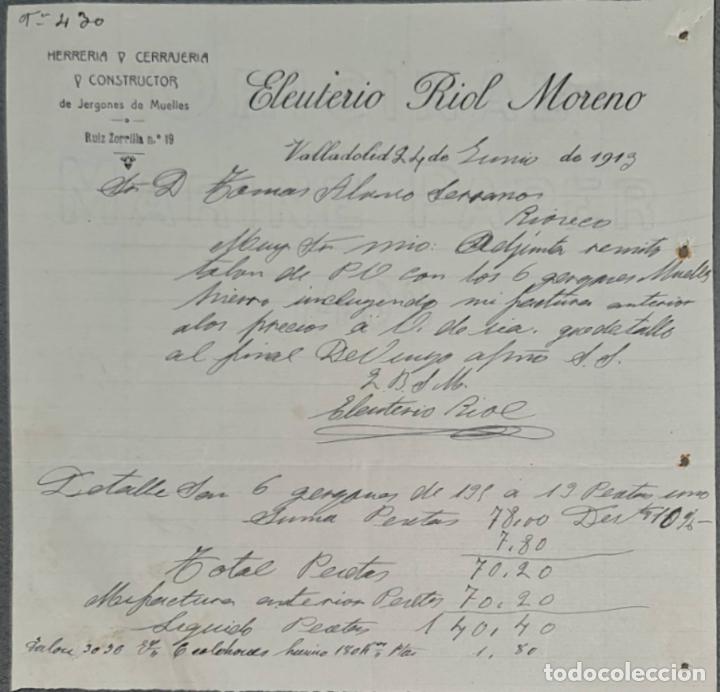 430
HERRERIA Y CERRAJERIA
Y CONSTRUCTOR
de Jergones de Muelles
Ruiz Zorrilla n.º 19
Eleuterio Riol Moreno
Valladolid 24 de Junio de 1913
Sr D Tomas Alvaro Serranos
Rioseco
Muy Sr mio: Adjunto remito
talon de PV con los 6 gergones Muelles
hierro incluyendo mi factura anterior
a los precios á V. de tallo
al final De V suyo afmo S. S.
Q. B. S. M.
Eleuterio Riol
Detalle Son 6 gergones de a 13 Pesetas uno
Suma Pesetas 78,00 Des 10 %
7,80
Total Pesetas 70,20
Mi factura anterior Pesetas 70,20
Liquido Pesetas 140,40
Talon 3030 6 1,80
todocoleccion